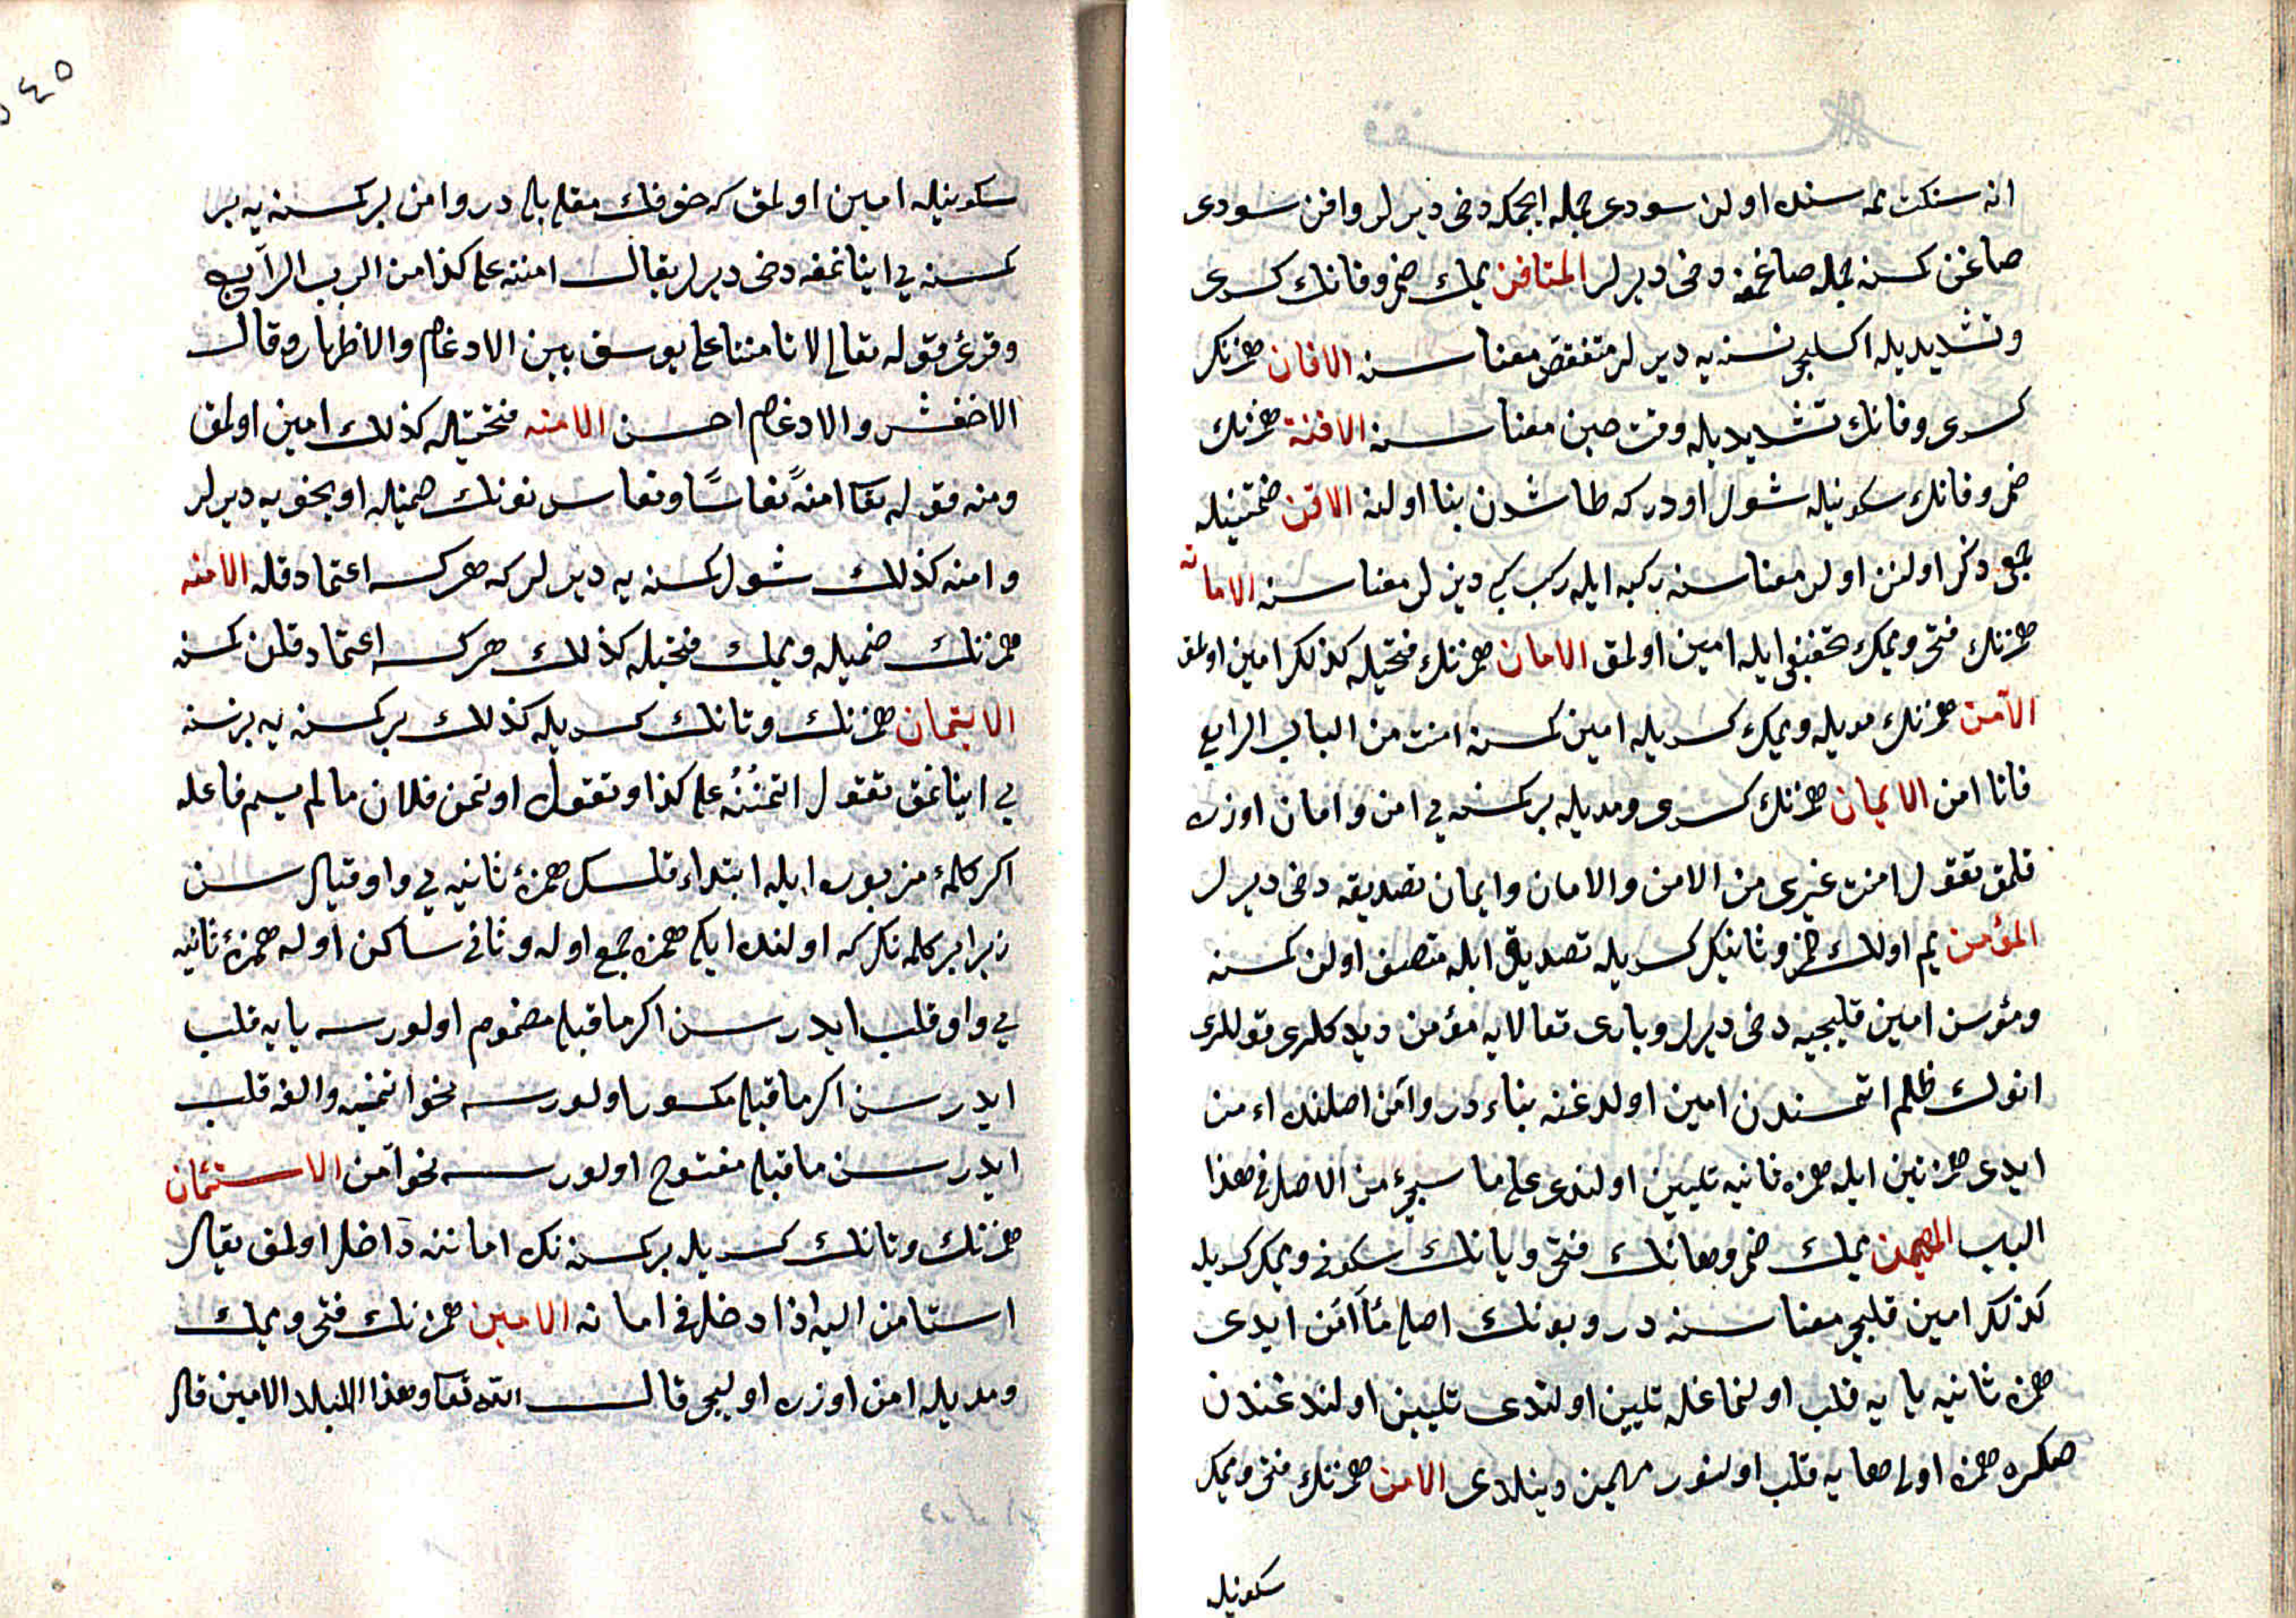 انه سنك ممه سنده اولن سودى جمله ايچمكه دخى ديرلر وافن سودى
صاغن كمسنه جمله صاغمغه دخى ديرلر المتافن يمك ضم وفانك كسرى
وتشديديله اكسليجى نسنه يه ديرلر متنقص معناسنه الافان همزنك
كسرى وفانك تشديديله وقت حين معناسنه الافنة همزنك
ضم وفانك سكونيله شول اودر كه طاشدن بنا اولنه الاقن ضمتينيله
جمعى ذكر اولنن اولن معناسنه ركبه ايله ركب كبى ديرلر معناسنه الامانه
همزنك فتحى وميمك تخفيفى ايله امين اولمق الامان همزنك فتحيله كذلك امين اولمق
الآمن همزنك مديله وميمك كسريله امين كمسنه امنت من الباب الرابع
فانا امن الايمان همزنك كسرى ومديله بر كمسنه يى امن وامان اوزره
قلمق تقول امنت غيرى من الامن والامان وايمان تصديقه دخى ديرلر
المؤمن يم اولك ضم وثانينك كسريله تصديق ايله متصف اولن كمسنه
ومؤمن امين قليجيه دخى ديرلر وبارى تعالايه مؤمن ديدكلرى قوللرى
انوك ظلم اتمسندن امين اولدغنه بناء در وآمن اصلنده اءمن
ايدى همزتين ايله همزه ثانيه تليين اولندى على ما سيجئ من الاصل فى هذا
الباب المهيمن يمك ضم وهانك فتحى ويانك سكونى وميمك كسريله
كذلك امين قليجى معناسنه در وبونك اصلى مأامن ايدى
همزه ثانيه يايه قلب اولنماغله تليين اولندى تليين اولندغندن
صكره همزه اولى هايه قلب اولنور مهيمن دينلدى الامن همزنك فتحى وميمك
سكونيله
سكونيله امين اولمق كه خوفك مقابلى در وامن بر كمسنه يه بر
كمسنه يى اينانمغه دخى ديرلر يقال امنته على كذا من الباب الرابع
وقرئ قوله تعالى لا تامننا على يوسف بين الادغام والاظهار وقال
الاخفش والادغام احسن الامنه فتحتيله كذلك امين اولمق
ومنه قوله تعا امنةً نعاسًا ونعاس نونك ضميله اويخويه ديرلر
وامنه كذلك شول كمسنه يه ديرلر كه هر كسه اعتماد قله الامنه
همزنك ضميله وميمك فتحيله كذلك هر كسه اعتماد قلن كمسنه
الايتمان همزنك وتانك كسريله كذلك بر كمسنه يه بر نسنه
يى اينانمق تقول ائتمنته على كذا وتقول اوتمن فلان ما لم يسم فاعله
اكر كلمه مزبوره ايله ابتداء قلسك همزۀ ثانيه يى واو قيلرسن
زيرا بر كلمه نك كه اولنده ايكى همزه جمع اوله وثانى ساكن اوله همزۀ ثانيه
يى واو قلب ايدرسن اكر ما قبلى مضموم اولورسه يايه قلب
ايدرسن اكر ما قبلى مكسور اولورسه نحو ائتمنه والفه قلب
ايدرسن ما قبلى مفتوح اولورسه نحو آمن الاستئمان
همزنك وتانك كسريله بر كمسنه نك اماننه داخل اولمق يقال
استامن اليه اذا دخل فى امانه الامين همزنك فتحى وميمك
ومديله امن اوزره اوليجى قال الله تعا وهذا البلد الامين قال